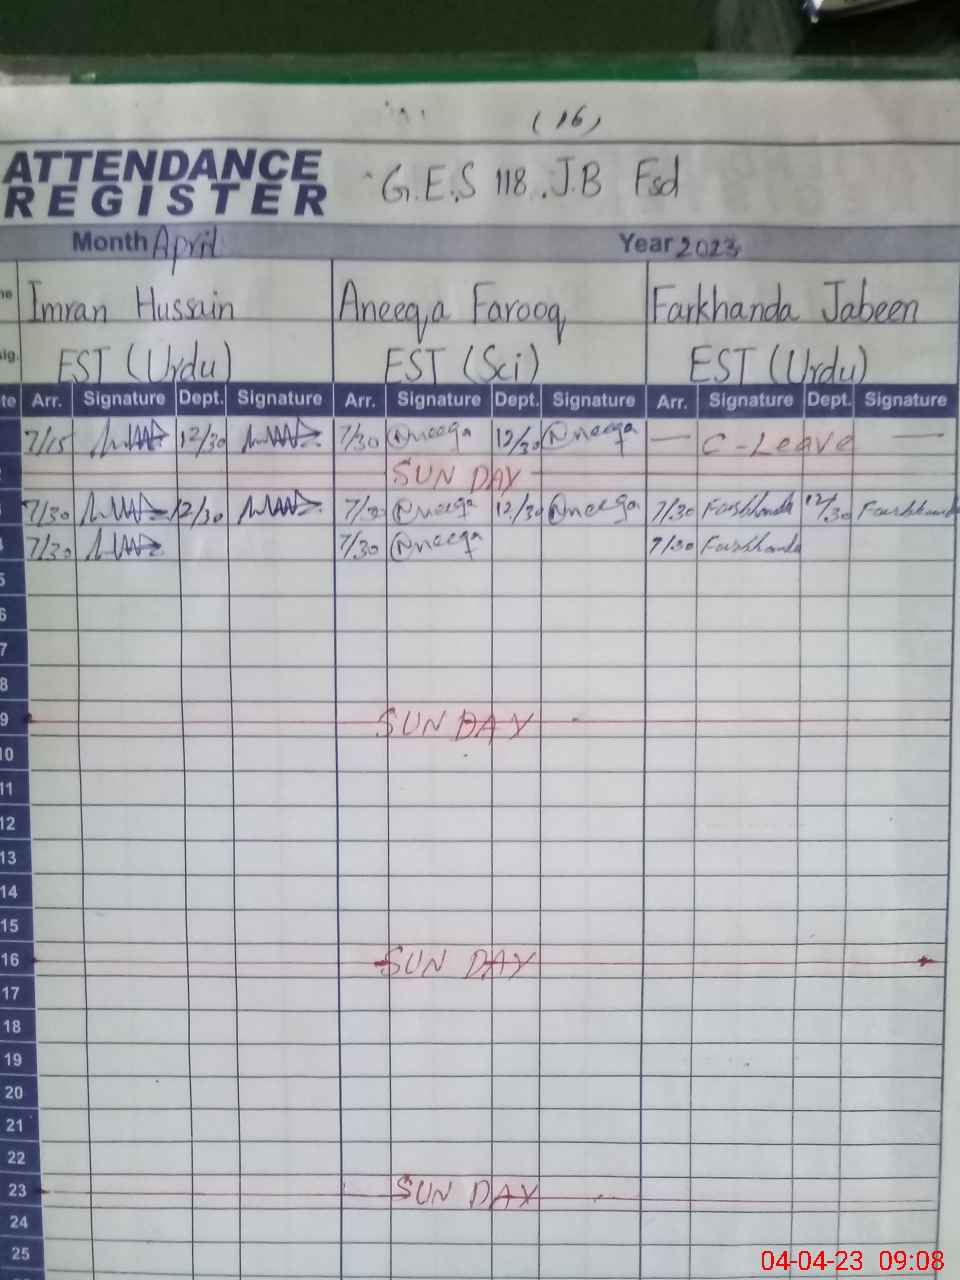 (16)
ATTENDANCE REGISTER
G.E.S 118 J.B Fsd
Month April Year 2023
Imran Hussain Aneeqa Farooq Farkhanda Jabeen
sig. EST (Urdu) EST (Sci) EST (Urdu)
Arr. Signature Dept. Signature Arr. Signature Dept. Signature Arr. Signature Dept. Signature
7/15 12/30 7/30 Aneeqa 12/30 Aneeqa — C-Leave —
SUNDAY
7/30 12/30 7/30 Aneeqa 12/30 Aneeqa 7/30 Farkhanda 12/30 Farkhanda
7/30 7/30 Aneeqa 7/30 Farkhanda
5
6
7
8
9 SUNDAY
10
11
12
13
14
15
16 SUNDAY
17
18
19
20
21
22
23 SUNDAY
24
25
04-04-23 09:08